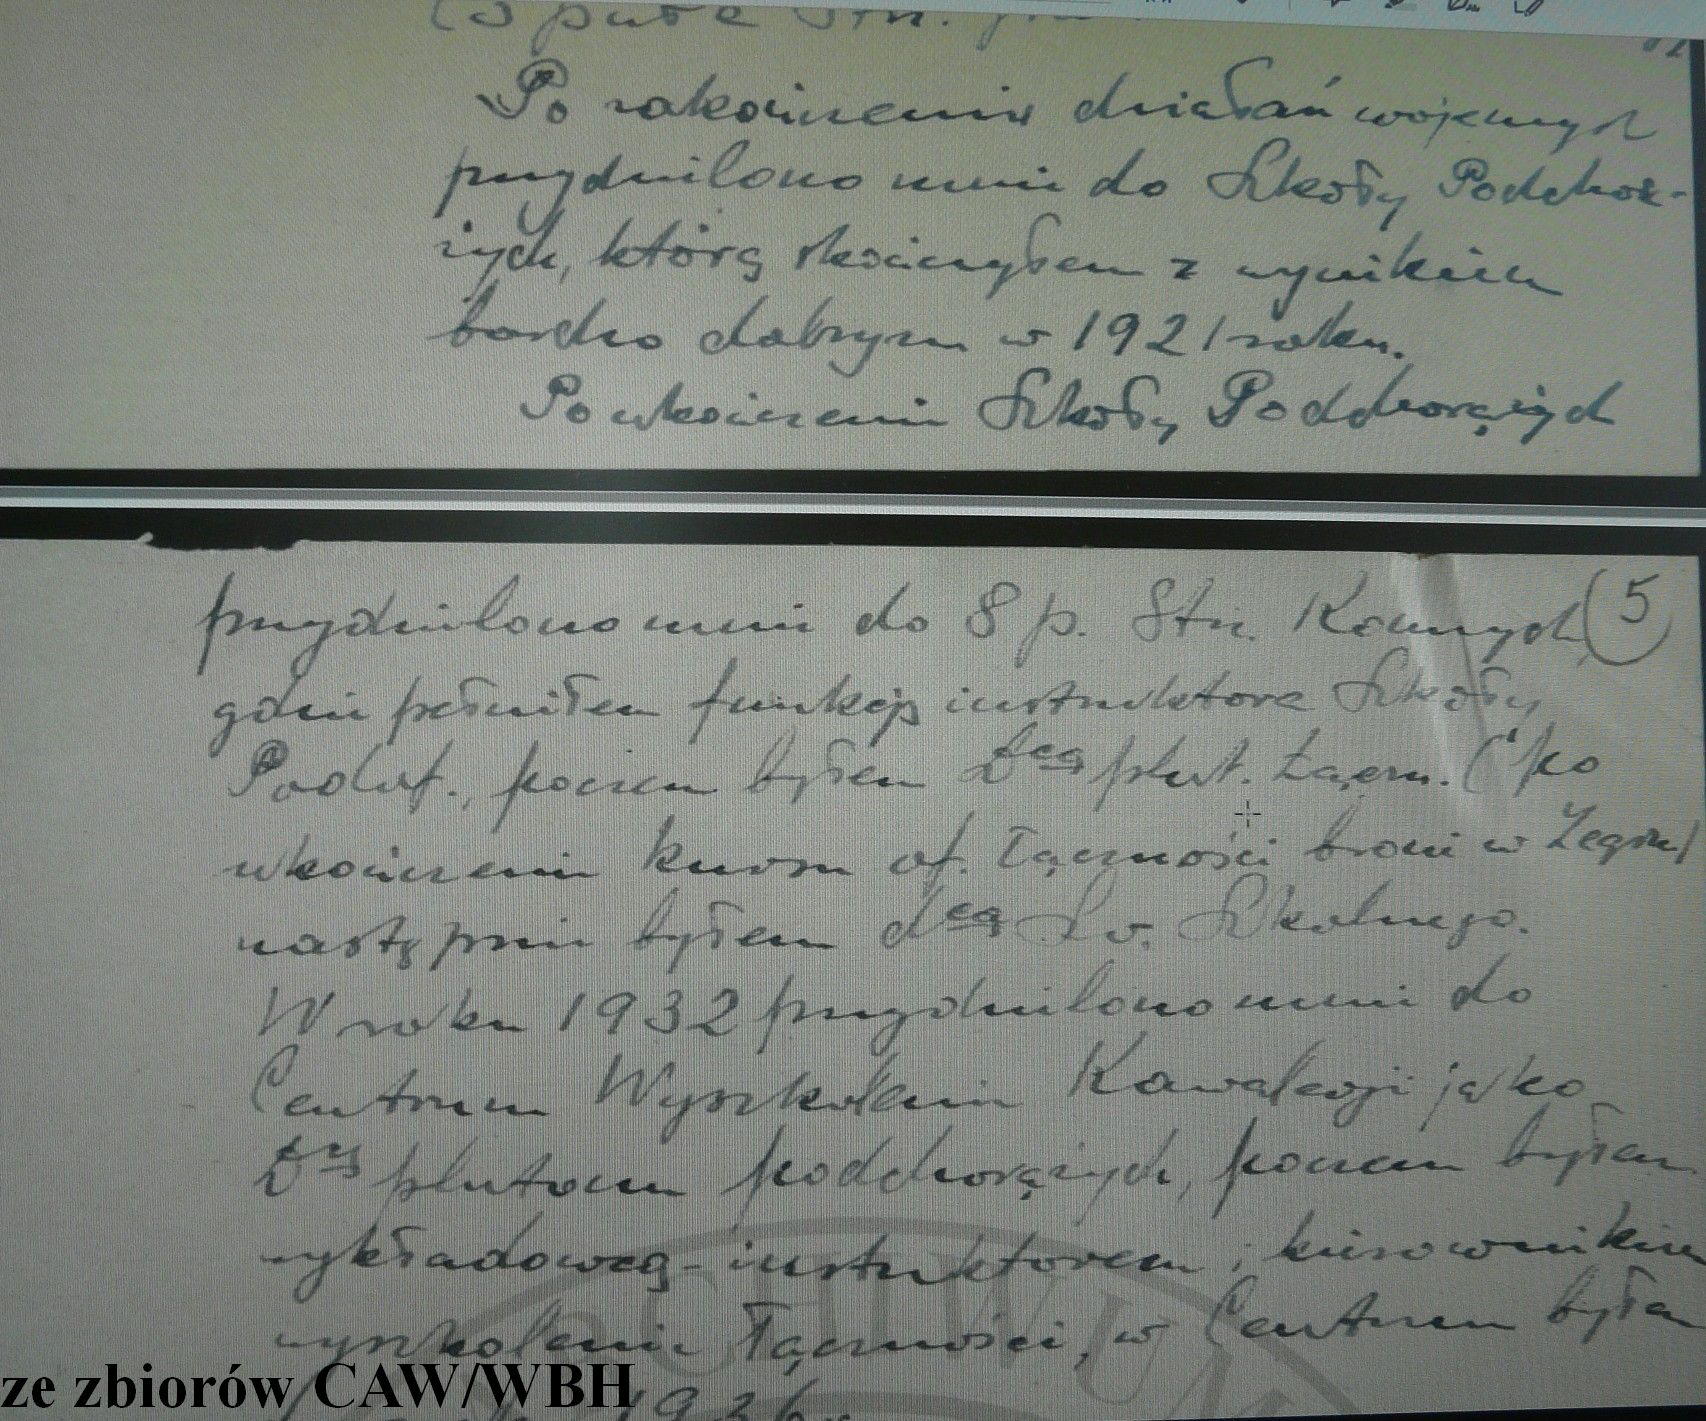 Po zakończeniu działań wojennych
przydzielono mnie do Szkoły Podchor-
żych, którą skończyłem z wynikiem
bardzo dobrym w 1921 roku.
Po ukończeniu Szkoły Podchorążych
przydzielono mnie do 8 p. Strz. Konnych, (5)
gdzie pełniłem funkcję instruktora Szkoły
Podof., poczem byłem Dcą plut. łączn. (po
ukończeniu kursu of. łączności broni w Zegrzu)
następnie byłem dcą szw. Szkolnego.
W roku 1932 przydzielono mnie do
Centrum Wyszkolenia Kawalerji jako
Dcę plutonu podchorążych, poczem byłem
wykładowcą - instruktorem i kierownikiem
wyszkolenia łączności, w Centrum byłem
1936
ze zbiorów CAW/WBH